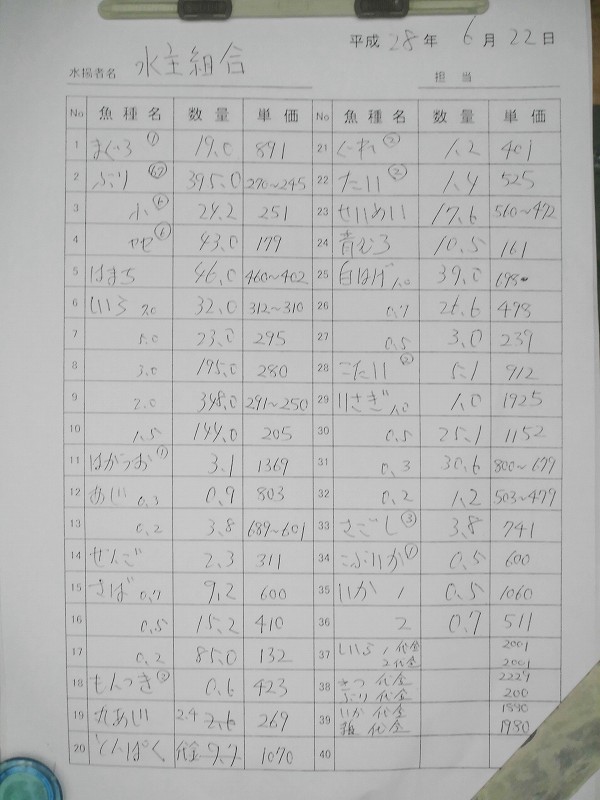 平成 28 年 6 月 22 日
水揚者名 水主組合
担当
No 魚種名 数量 単価
1 まぐろ ① 19.0 891
2 ぶり 395.0 270~245
3 小 ⑥ 24.2 251
4 ヤセ ⑥ 43.0 179
5 はまち 46.0 460~402
6 しいら 7.0 32.0 312~310
7 5.0 23.0 295
8 3.0 195.0 280
9 2.0 348.0 291~250
10 1.5 144.0 205
11 はがつお ① 3.1 1369
12 あじ 0.3 0.9 803
13 0.2 3.8 689~601
14 ぜんご 2.3 311
15 さば 0.7 9.2 600
16 0.5 15.2 410
17 0.2 85.0 132
18 もんつき ② 0.6 423
19 丸あじ 2.4 269
20 とんぱく 代金 1070
No 魚種名 数量 単価
21 ぐれ ② 1.2 401
22 たい ② 1.4 525
23 せいめい 17.6 560~472
24 青むろ 10.5 161
25 白はげ 1.0 39.0 698
26 0.7 26.6 478
27 0.5 3.0 239
28 こたい ② 5.1 912
29 いさぎ 1.0 1.0 1925
30 0.5 25.1 1152
31 0.3 30.6 800~699
32 0.2 1.2 503~479
33 さごし ③ 3.8 741
34 こぶいか ① 0.5 600
35 いか 1 0.5 1060
36 2 0.7 511
37 しいら 1 代金 2001
2 代金 2001
38 さつ 代金 2227
ぶり 代金 200
39 いか 代金 1890
代金 1980
40